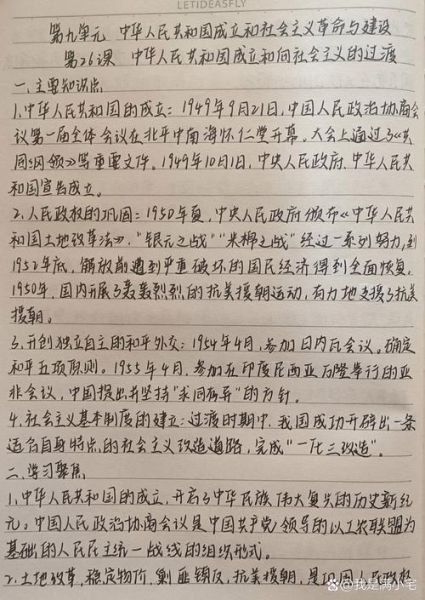 LETIDEASFLY
第九单元 中华人民共和国成立和社会主义革命与建设
第26课 中华人民共和国成立和向社会主义的过渡
一、主要知识点
1.中华人民共和国的成立：1949年9月21日，中国人民政治协商会
议第一届全体会议在北平中南海怀仁堂开幕。大会上通过了《共
同纲领》等重要文件。1949年10月1日，中央人民政府、中华人民共
和国宣告成立。
2.人民政权的巩固：1950年夏，中央人民政府颁布《中华人民共
和国土地改革法》，"银元之战""米棉之战"经过一系列努力，到
1952年底，解放前遭到严重破坏的国民经济得到全面恢复。
1950年，国内开展了轰轰烈烈的抗美援朝运动，有力地支援了抗美
援朝。
3.开创独立自主的和平外交：1954年4月，参加日内瓦会议。确定
和平五项原则。1955年4月，参加在印度尼西亚万隆举行的亚
非会议，中国提出并坚持"求同存异"的方针。
4.社会主义基本制度的建立：过渡时期中，我国成功开辟出一条
适合自身特点的社会主义改造道路，完成"一化三改造"。
二、学习聚焦
1.中华人民共和国的成立，开启了中华民族伟大复兴的历史新纪
元。中国人民政治协商会议是中国共产党领导的以工农联盟为
基础的人民民主统一战线的组织形式。
2.土地改革，稳定物价，剿匪镇反，抗美援朝，是巩固人民政权
@我是满小宅